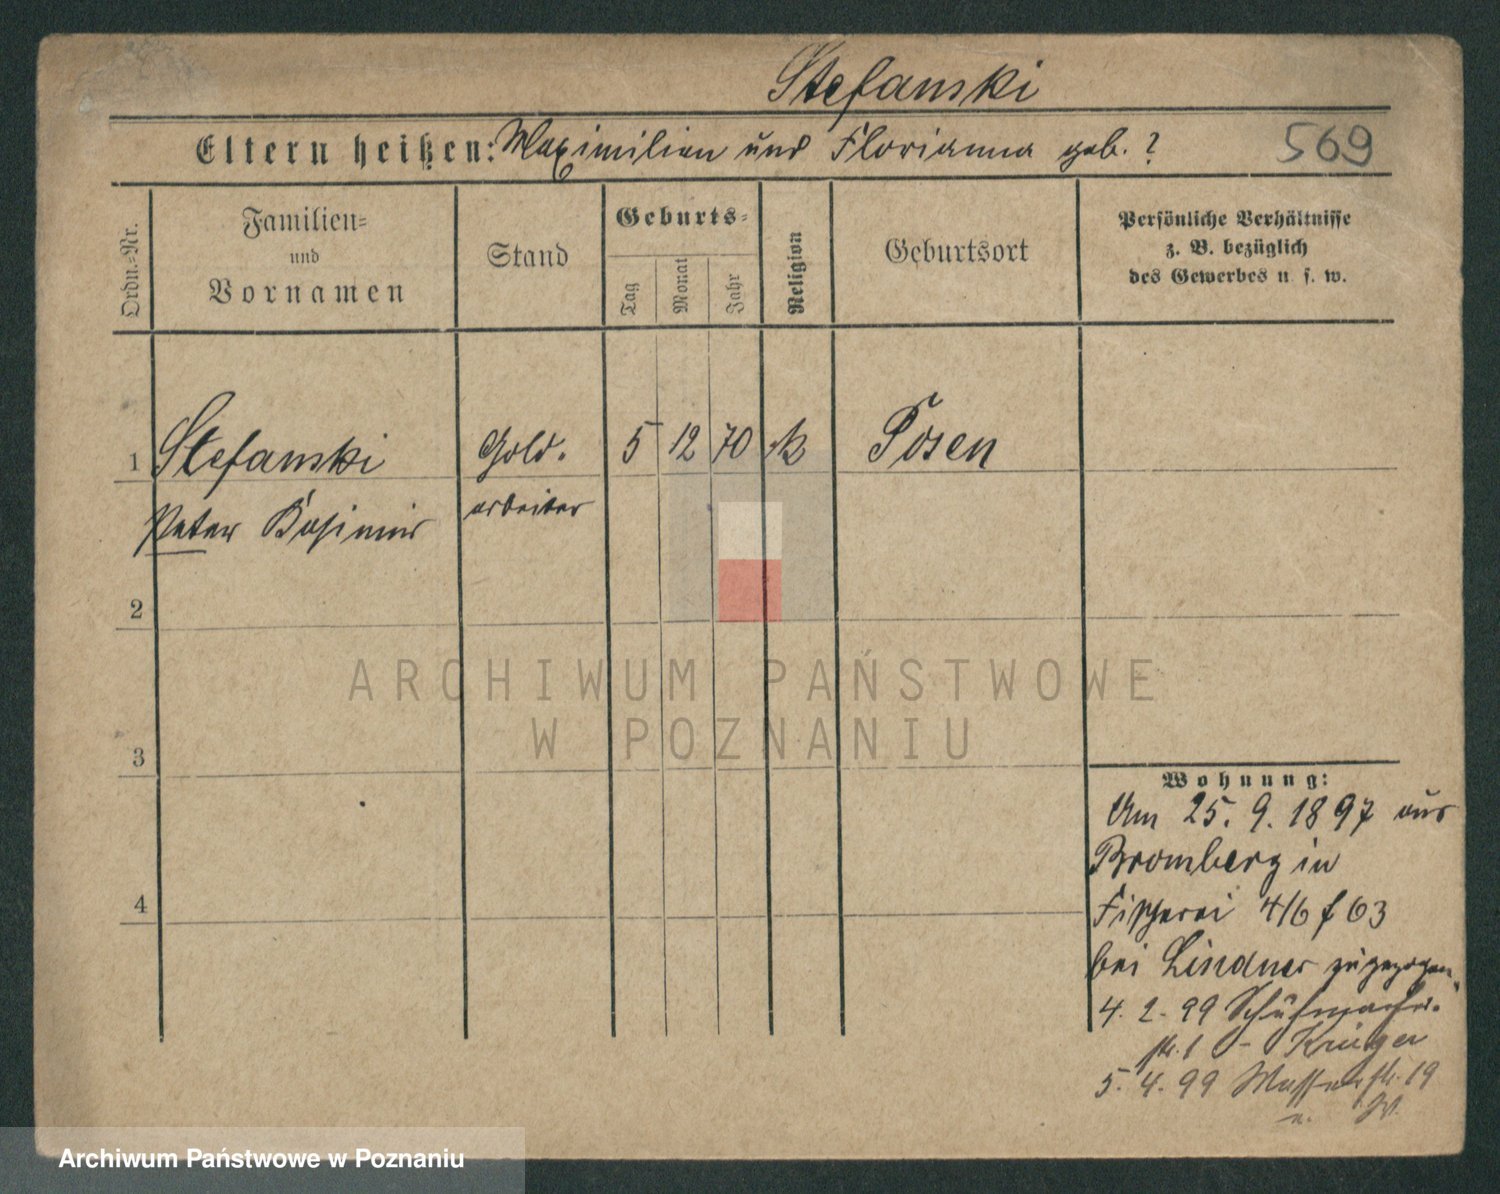 Stefanski
Eltern heißen: Maximilian und Florianna geb. ?
569
Ordn.-Nr.
Familien-
und
Vornamen
Stand
Geburts-
Tag
Monat
Jahr
Religion
Geburtsort
Persönliche Verhältnisse
z. B. bezüglich
des Gewerbes u. s. w.
1 Stefanski Gold. 5 12 70 k Posen
Peter Kasimir arbeiter
2
3
4
Wohnung:
Am 25. 9. 1897 aus
Bromberg in
Fischerei 4/6 f 63
bei Lindner zugezogen.
4. 2. 99 Schuhmacher-
str. 1 - Krüger
5. 4. 99 Wasserstr. 19
ARCHIWUM PAŃSTWOWE
W POZNANIU
Archiwum Państwowe w Poznaniu